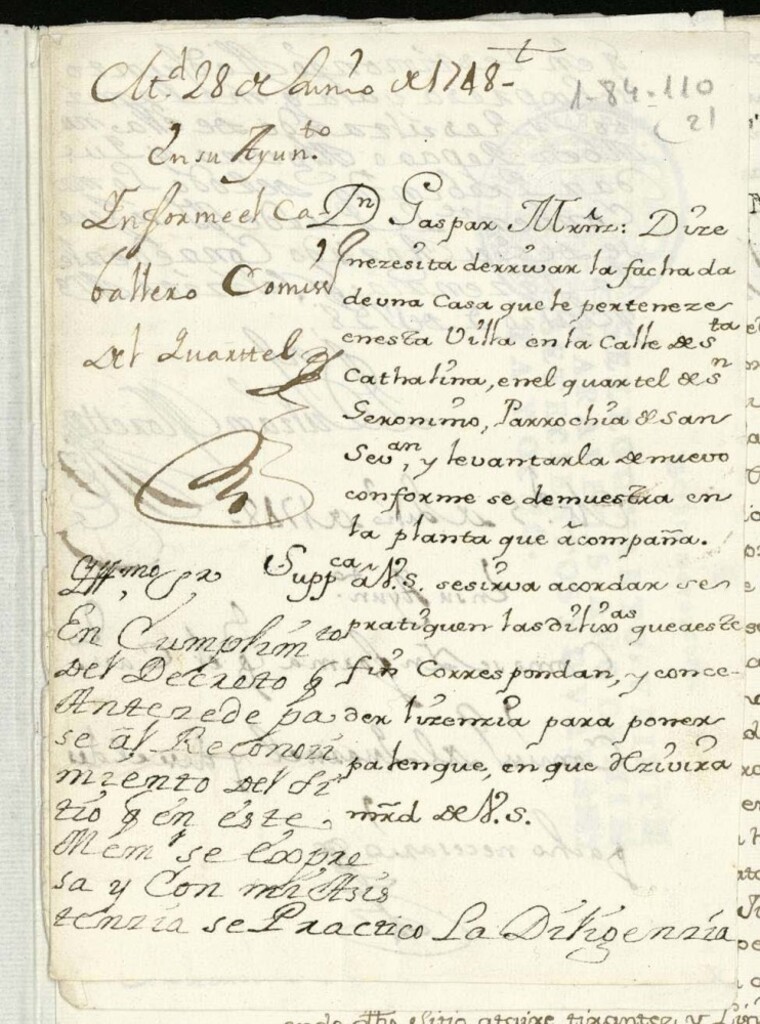 Md. 28 de Junio de 1748
1-84-110
(2)
En su Ayunto.
Informe el Ca
ballero Comisso
del Quarttel
Dn Gaspar Mrñz: Dize
nezesita derrivar la fachada
de una Casa que le perteneze
en esta Villa en la Calle de Sta
Cathalina, en el quartel de Sn
Geronimo, Parrochia de San
Sevan, y levantarla de nuevo
conforme se demuestra en
la planta que acompaña.
Suppca a V.S. se sirva acordar se
pratiquen las dilixas que a este
fin Correspondan, y conce-
der lizenzia para poner
palenque, en que Rzivira
mrd de V.S.
Yllmo Sr
En Cumplimto
del Decreto q
Antezede pa
se al Reconozi
miento del si
tio q en este
Meml se expre
sa y Con mi Asis
tenzia se Practico La Diligenzia